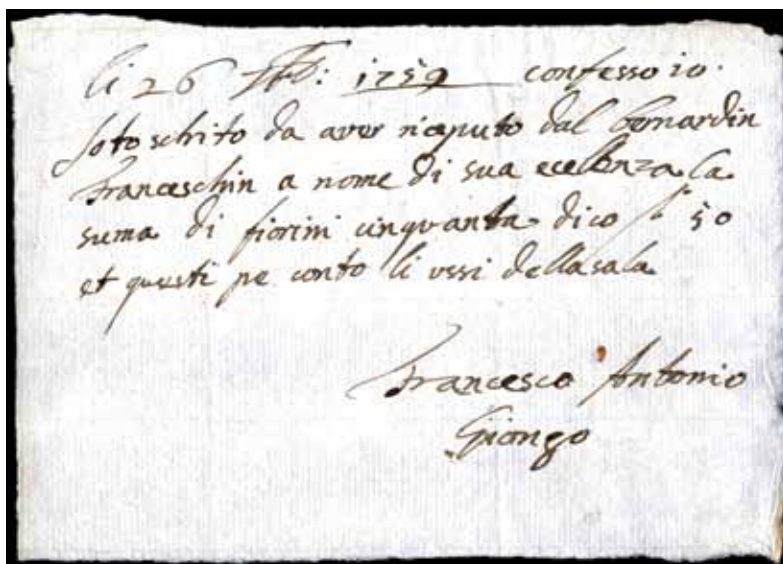 li 26 7bre: 1759 confesso io
sotoschrito da aver riceputo dal bernardin
Franceschin a nome di sua ecellenza la
suma di fiorini cinquanta dico f 50
et questi pe conto li ussi della sala
Francesco Antonio
Giongo